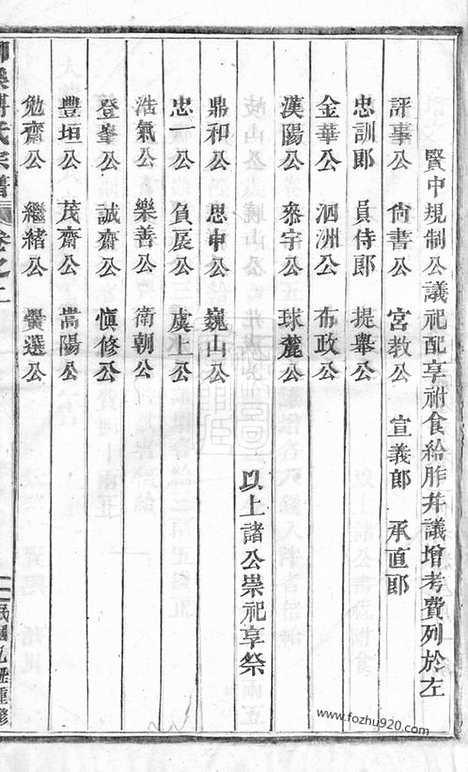 賢中規制公議祀配享祔食給胙并議增考費列於左
評事公 尙書公 宮教公 宣義郎 承直郎
忠訓郎 員侍郎 提舉公
金華公 泗洲公 布政公
漢陽公 泰宇公 球麓公
以上諸公崇祀享祭
鼎和公 思中公 巍山公
忠一公 負扆公 虞上公
浩氣公 樂善公 衛朝公
登峯公 誠齋公 愼修公
豐垣公 茂齋公 嵩陽公
勉齋公 繼緒公 選公
氏宗譜 卷之二
民國九年重修
www.fozhu920.com